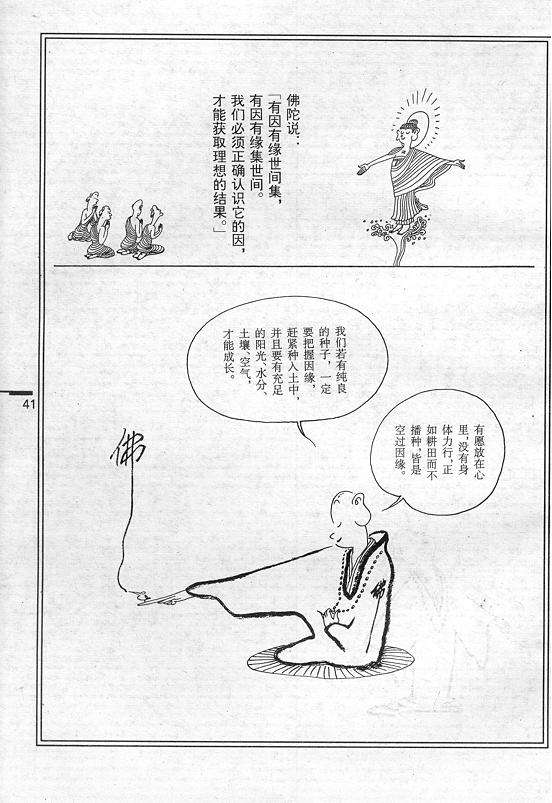 佛陀说：
「有因有缘世间集，
有因有缘集世间。
我们必须正确认识它的因，
才能获取理想的结果。」
我们若有纯良
的种子，一定
要把握因缘，
赶紧种入土中，
并且要有充足
的阳光、水分、
土壤、空气，
才能成长。
有愿放在心
里，没有身
体力行，正
如耕田而不
播种，皆是
空过因缘。
佛
佛
41